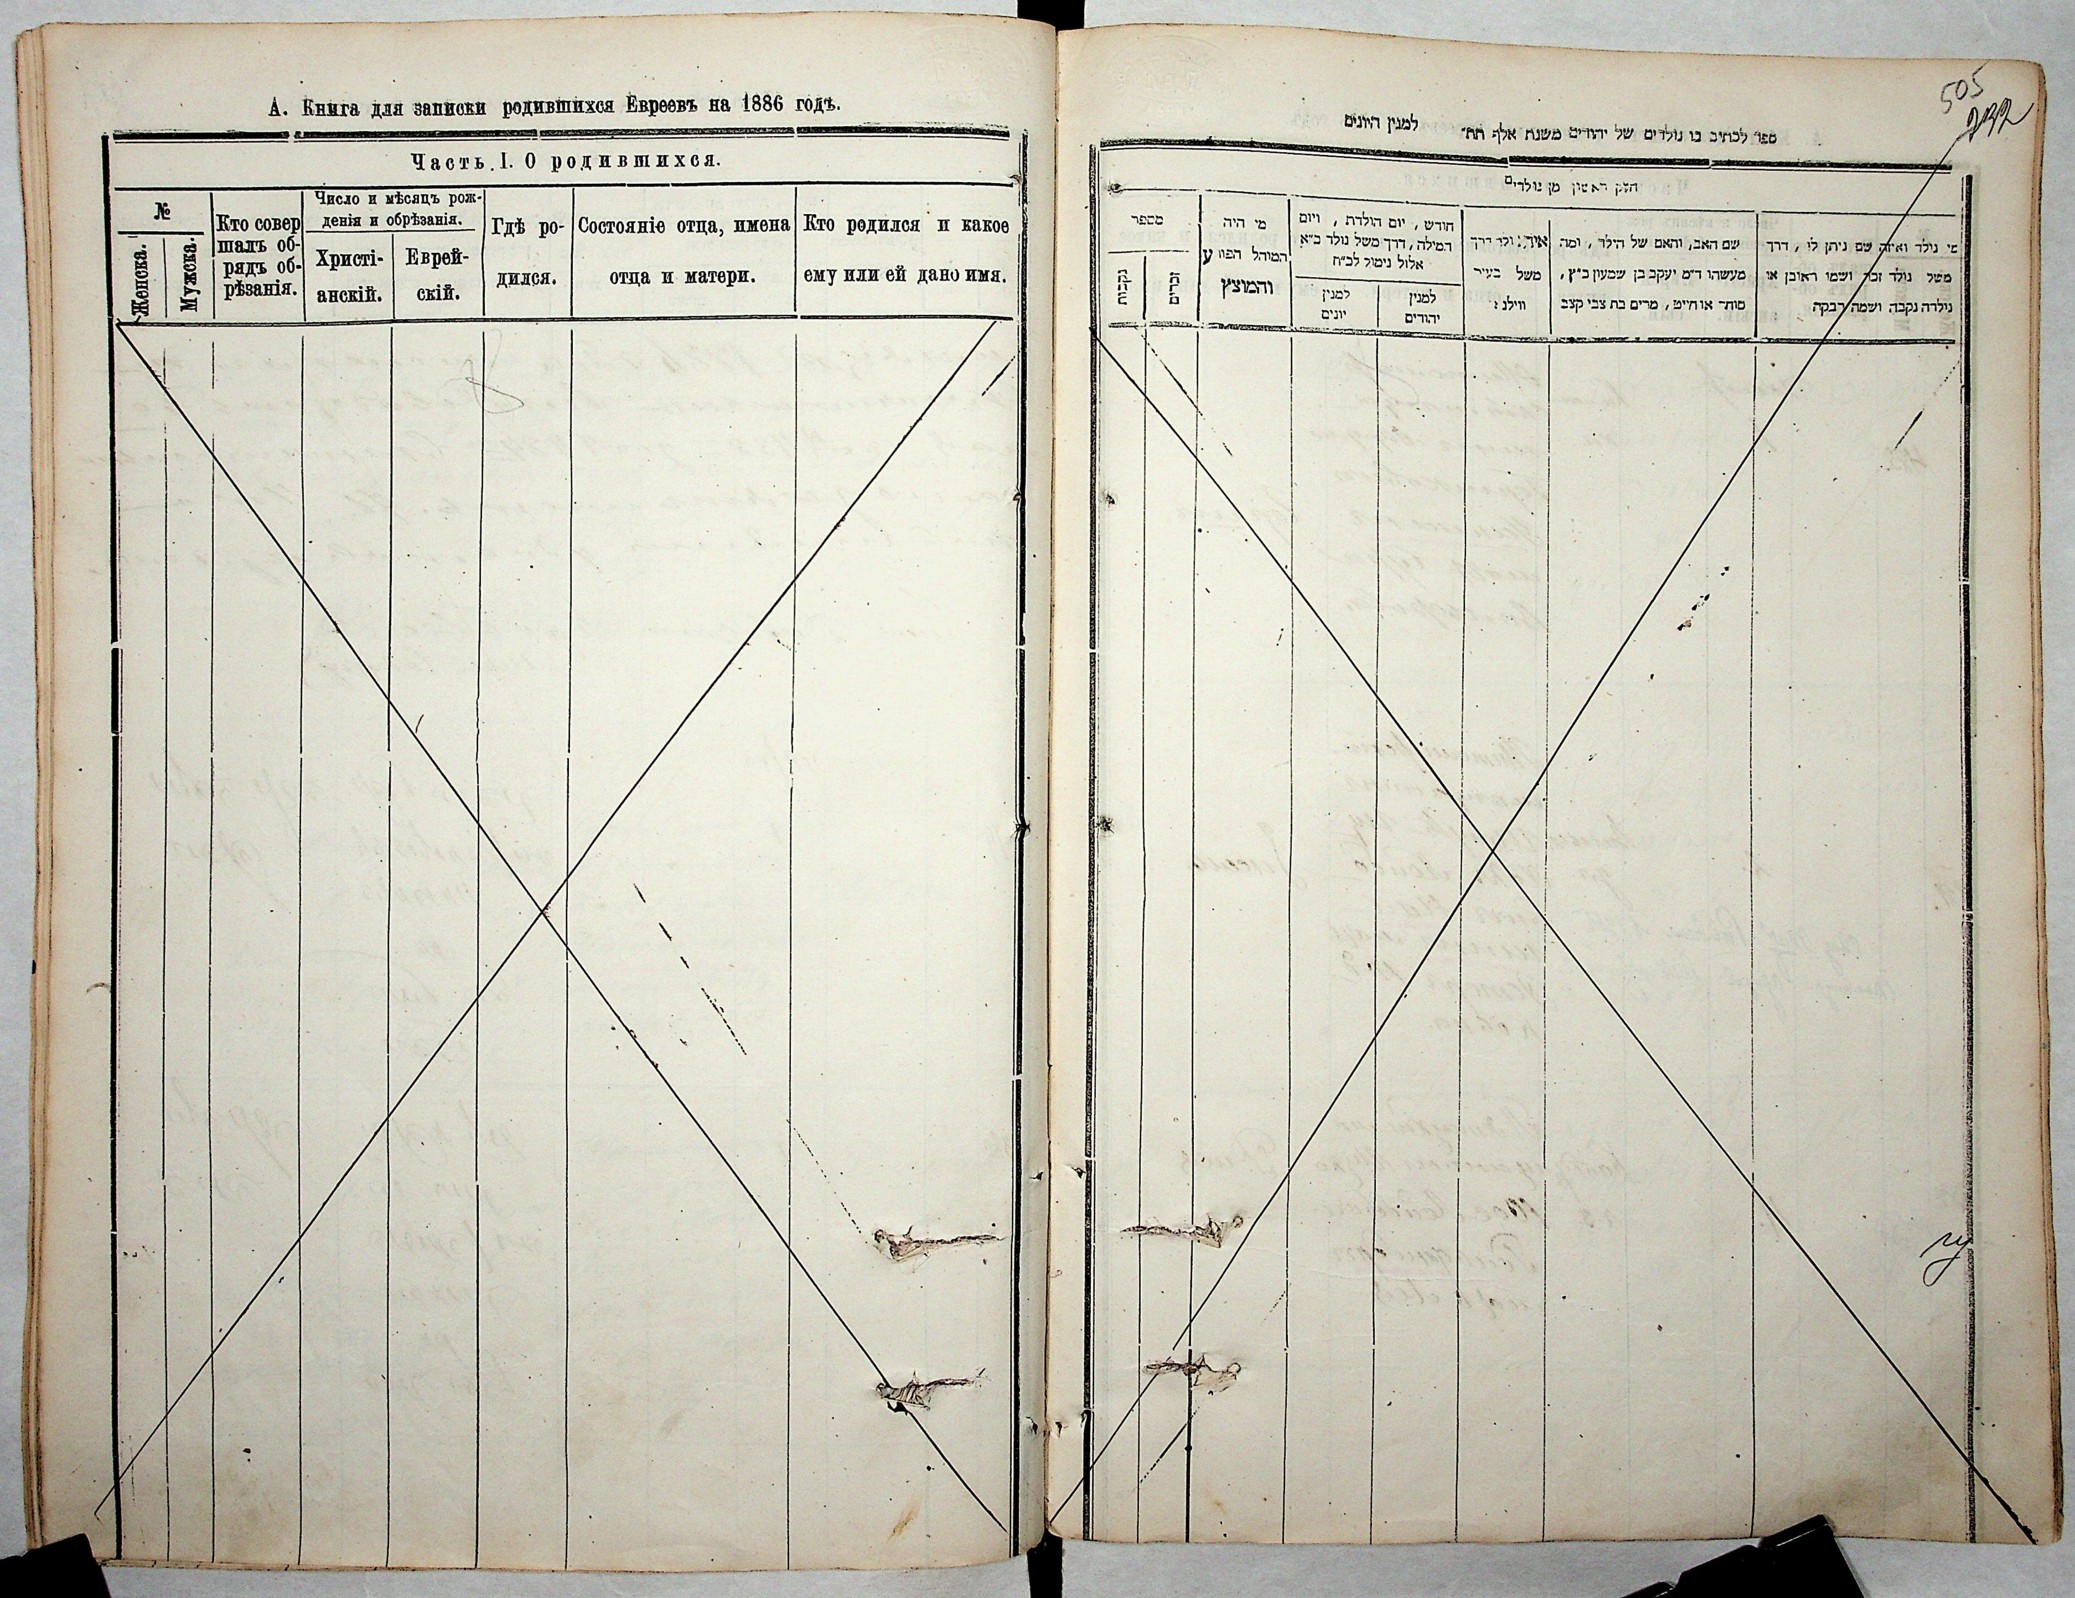 А. Книга для записки родившихся Евреевъ на 1886 годъ.
Часть I. О родившихся.
№
Женска.
Мужска.
Кто совер
шалъ об-
рядъ об-
рѣзанія.
Число и мѣсяцъ рож-
денія и обрѣзанія.
Христі-
анскій.
Еврей-
скій.
Гдѣ ро-
дился.
Состояніе отца, имена
отца и матери.
Кто родился и какое
ему или ей дано имя.
505
232
ספר לכתיב בו נולדים של יהודים משנת אלף תת״ למנין היונים
חלק ראשון מן נולדים
מספר
נקבות
זכרים
מי היה
המוהל הפורע
והמוצץ
חודש, יום הולדת, ויום
המילה, דרך משל נולד כ״א
אלול נימול לכ״ח
למנין
יונים
למנין
יהודים
איך נולד דרך
משל בעיר
ווילנא
שם האב, והאם של הילד, ומה
מעשהו ד״מ יעקב בן שמעון כ״ץ,
סוחר או חייט, מרים בת צבי קצב
מי נולד ואיזה שם ניתן לו, דרך
משל נולד זכר ושמו ראובן או
נולדה נקבה ושמה רבקה